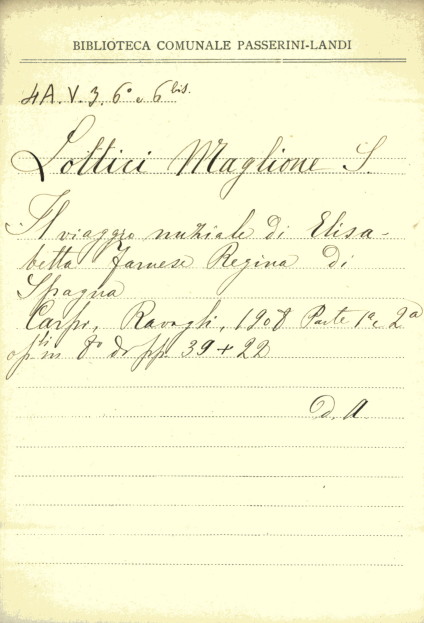 BIBLIOTECA COMUNALE PASSERINI-LANDI
4A.V.3.6° e 6bis.
Lottici Maglione S.
Il viaggio nuziale di Elisa-
betta Farnese Regina di
Spagna
Carpi, Ravagli, 1908 Parte 1a e 2a
opli in 8° di pp. 39+22
d. A